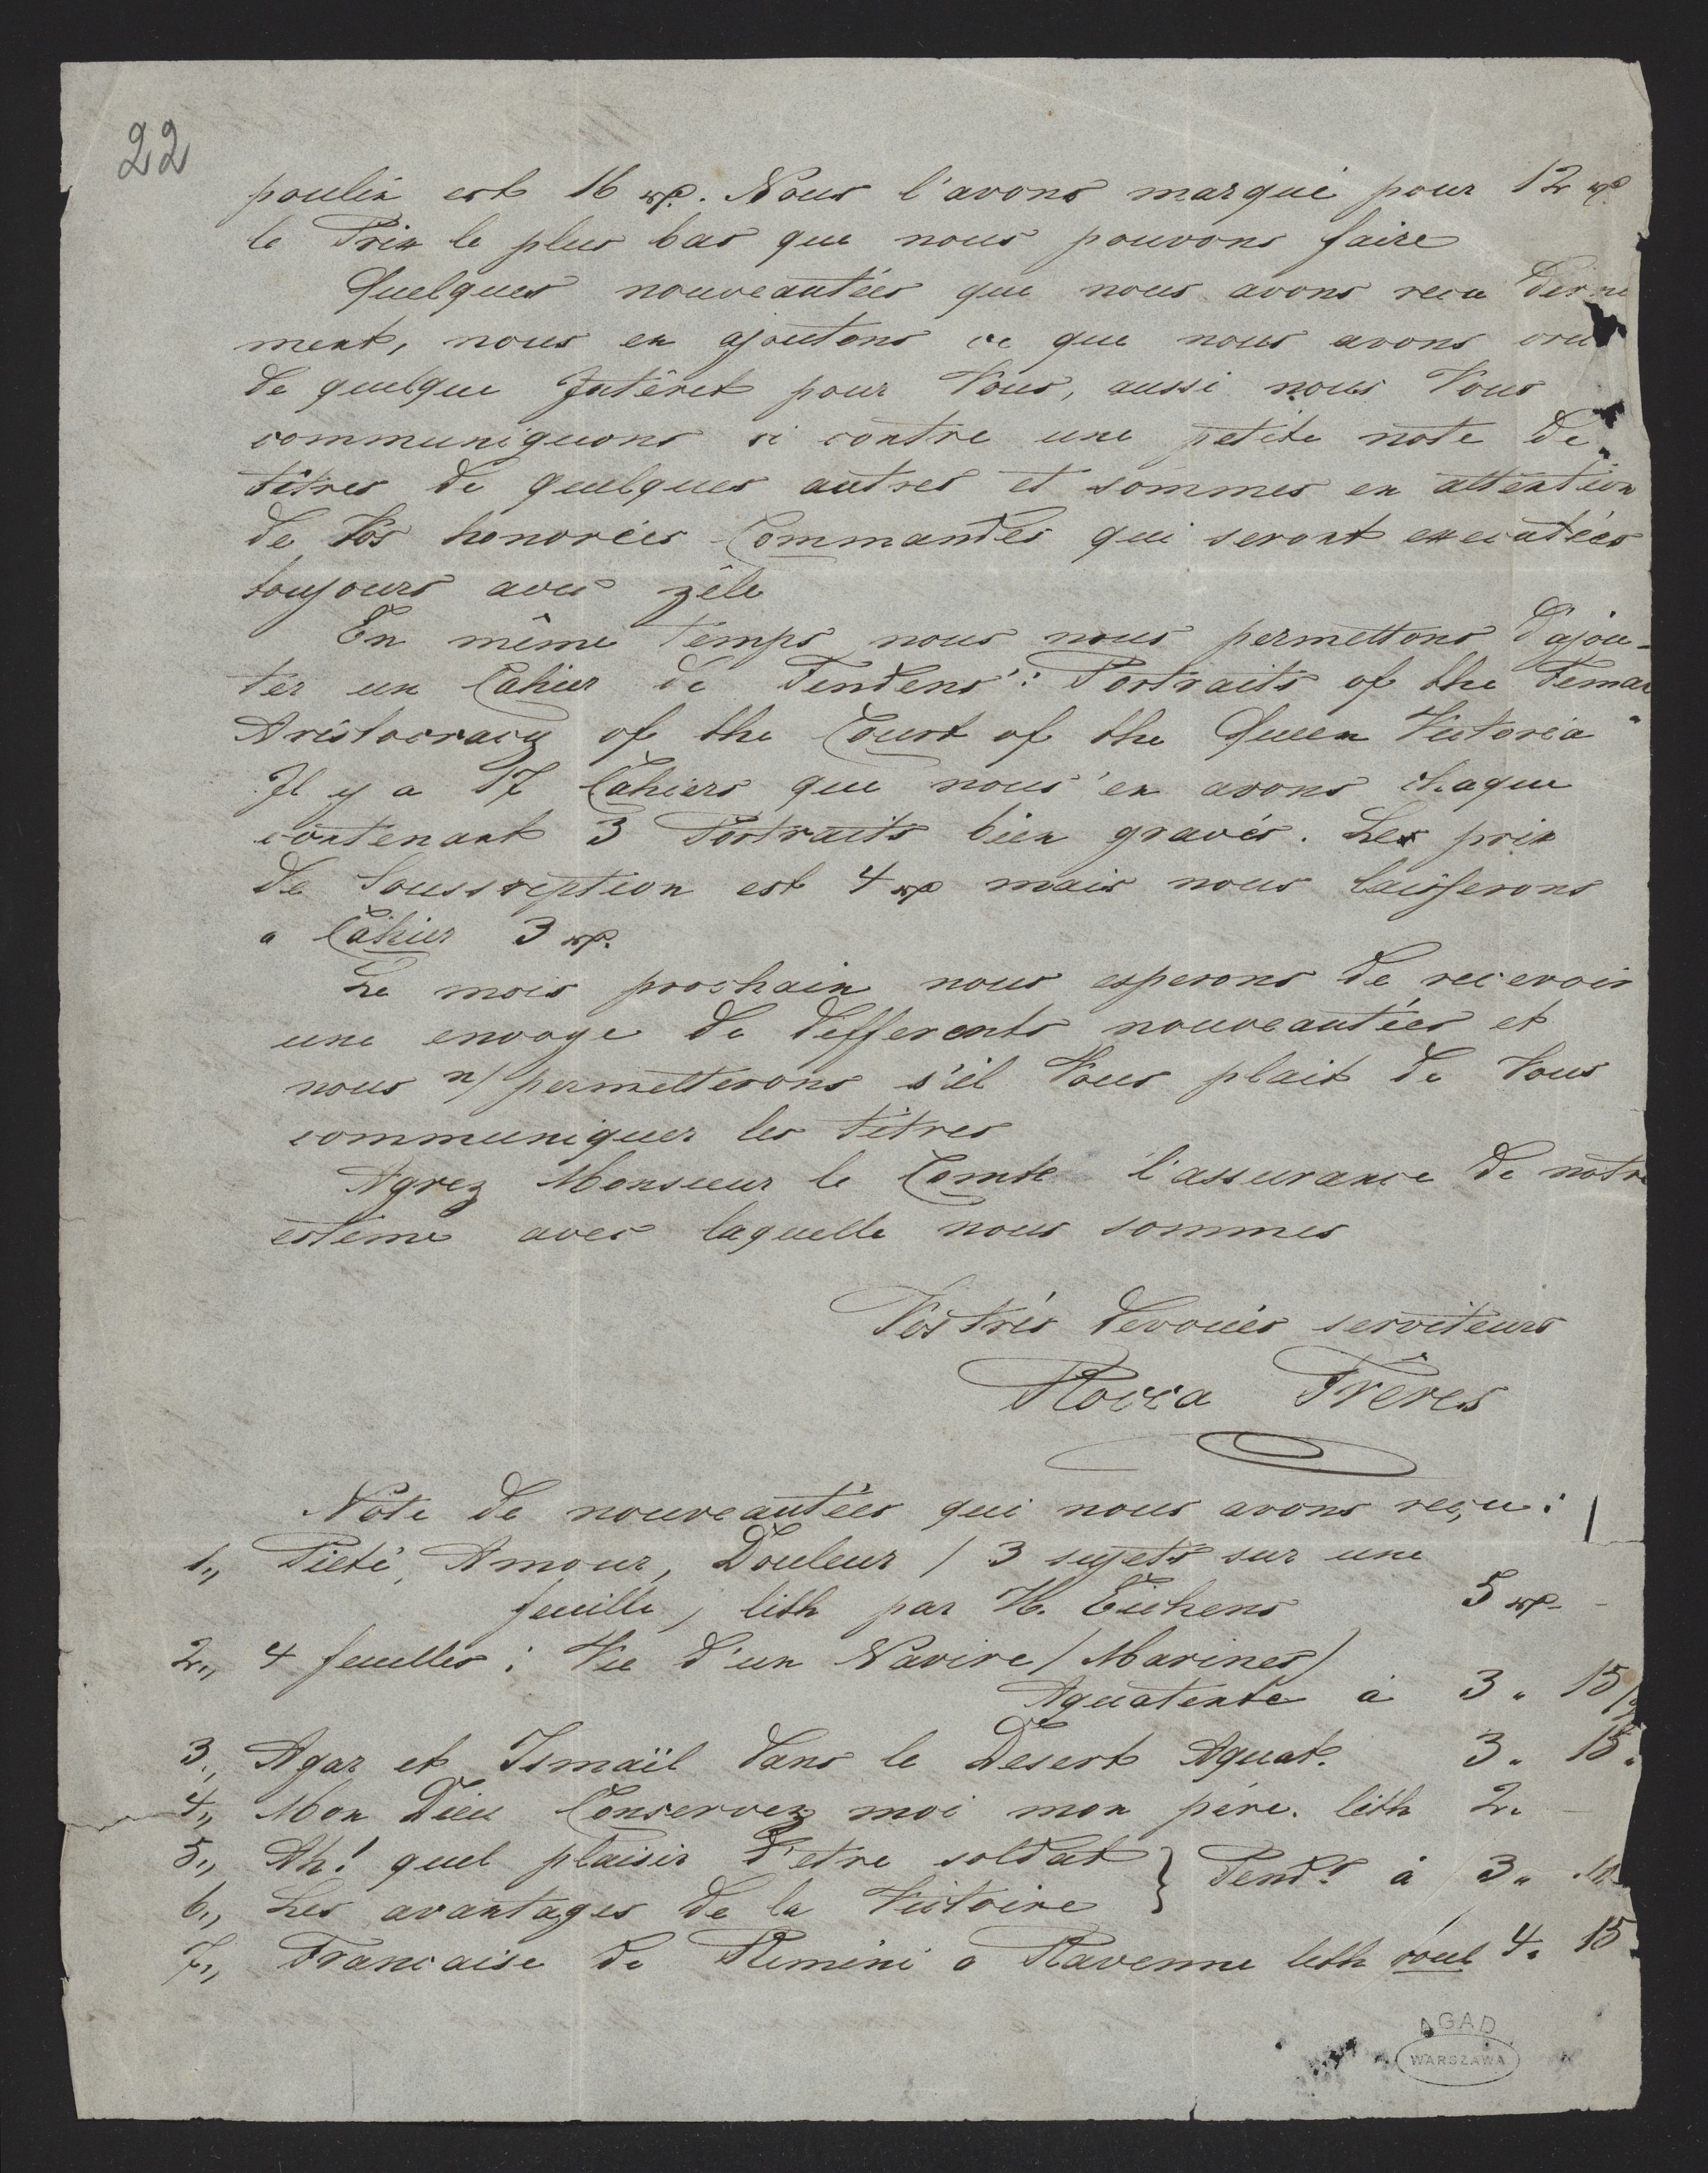 22
poulin est 16 rp. Nous l'avons marqué pour 12 rp
le Prix le plus bas que nous pouvons faire
Quelques nouveautées que nous avons recu derne
ment, nous en ajoutons ce que nous avons cru
de quelque Intêret pour Vous, aussi nous Vous
communiquons ci contre une petite note de
titres de quelques autres et sommes en attention
de Vos honorées Commandes qui seront executées
toujours avec zêle
En même temps nous nous permettons d'ajou-
ter un Cahier de Findens: Portraits of the Femal
Aristocracy of the Court of the Queen Victoria"
Il y a 17 Cahiers que nous en avons chaque
contenant 3 Portraits bien gravés. Le prix
de Souscription est 4 rp mais nous laisserons
a Cahier 3 rp.
Le mois prochain nous esperons de recevoir
une envoye de differents nouveautées et
nous n/ permetterons s'il Vous plait de Vous
communiquer les titres
Agrez Monsieur le Comte l'assurance de notre
esteme avec laquelle nous sommes
Vos trés devoués serviteurs
Rocca Frêres
Note de nouveautées qui nous avons reçu:
1.,, Pieté, Amour, Douleur / 3 sujets sur une
feuille, lith par H. Eichens 5 rp -
2.,, 4 feuilles: Vie d'un Navire / Marines/
Aquatente à 3 " 15
3.,, Agar et Ismaïl dans le Desert Aquat. 3 " 15 "
4.,, Mon Dieu Conservez moi mon pére. lith 2 " -
5.,, Ah! quel plaisir d'etre soldat } Pendt à 3 "
6.,, Les avantages de la Victoire
7.,, Francaise de Rimini a Ravenne lith coul 4 " 15 "
AGAD
WARSZAWA